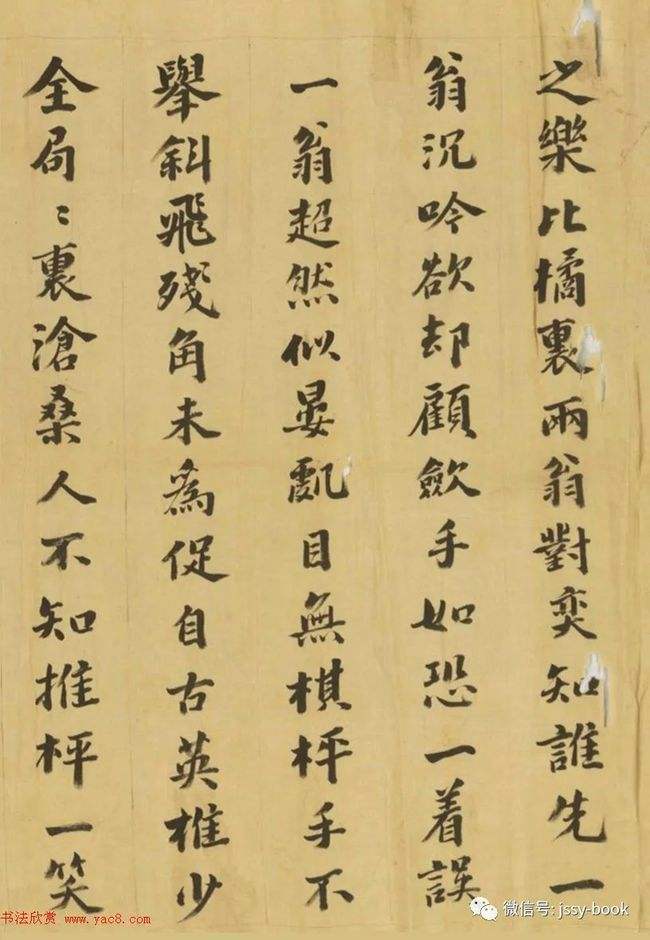 之樂比橘裏兩翁對奕知誰先一
翁沉吟欲却顧斂手如恐一着誤
一翁超然似晏亂目無棋枰手不
舉斜飛殘角未為促自古英雄少
全局〻裏滄桑人不知推枰一笑
书法欣赏 www.yac8.com
微信号: jssy-book